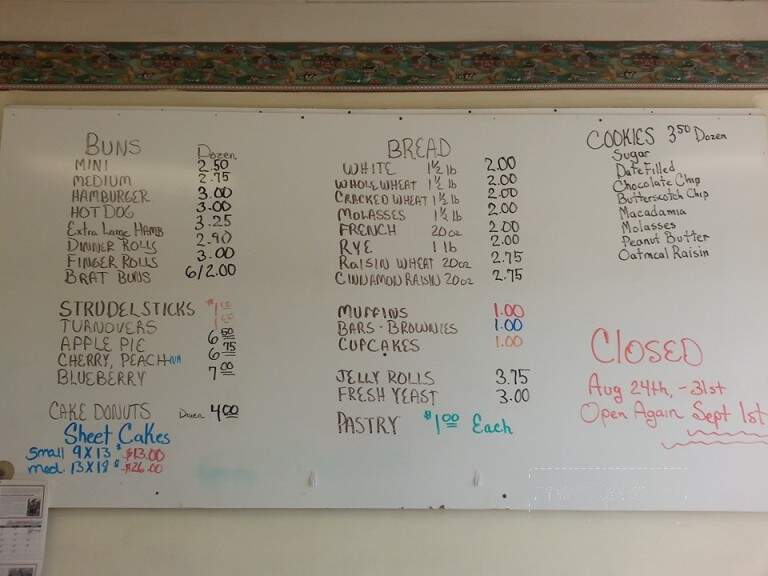 BUNS Dozen
MINI 2.50
MEDIUM 2.75
HAMBURGER 3.00
HOT DOG 3.00
Extra Large HAMB 3.25
DINNER ROLLS 2.90
FINGER ROLLS 3.00
BRAT BUNS 6/2.00
STRUDEL STICKS $1.00
TURNOVERS
APPLE PIE 6.50
CHERRY, PEACH-NA 6.75
BLUEBERRY 7.00
CAKE DONUTS Dozen 4.00
Sheet Cakes
Small 9X13 $13.00
med. 13X18 $26.00
BREAD
WHITE 1½ lb 2.00
WHOLE WHEAT 1½ lb 2.00
CRACKED WHEAT 1½ lb 2.00
MOLASSES 1½ lb 2.00
FRENCH 20oz 2.00
RYE 1 lb 2.00
RAISIN WHEAT 20oz 2.75
CINNAMON RAISIN 20oz 2.75
MUFFINS 1.00
BARS - BROWNIES 1.00
CUPCAKES 1.00
JELLY ROLLS 3.75
FRESH YEAST 3.00
PASTRY $1.00 Each
COOKIES 3.50 Dozen
Sugar
Date Filled
Chocolate Chip
Butterscotch Chip
Macadamia
Molasses
Peanut Butter
Oatmeal Raisin
CLOSED
Aug 24th, - 31st
Open Again Sept 1st